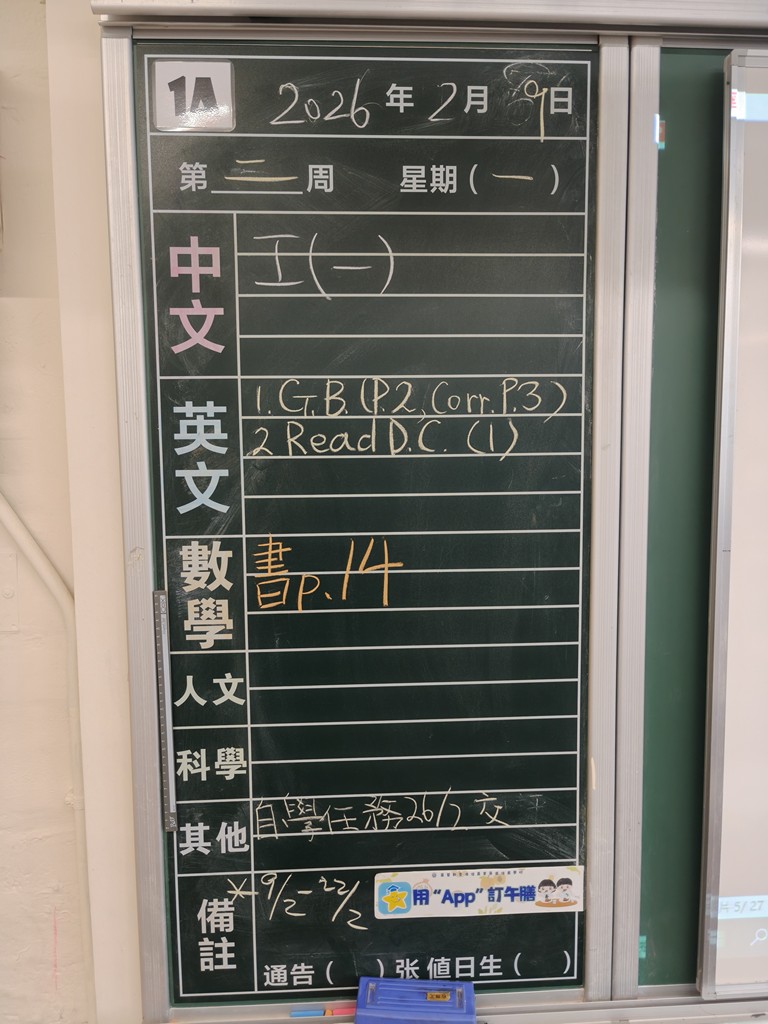 1A 2026年2月9日
第二周 星期(一)
中文 工(一)
英文 1. G.B. (P.2, Corr. P.3)
2 Read D.C. (1)
數學 書p.14
人文
科學
其他 自學任務26/2交
備註 *9/2-22/2 用“App”訂午膳
通告( )张 值日生( )
5/27